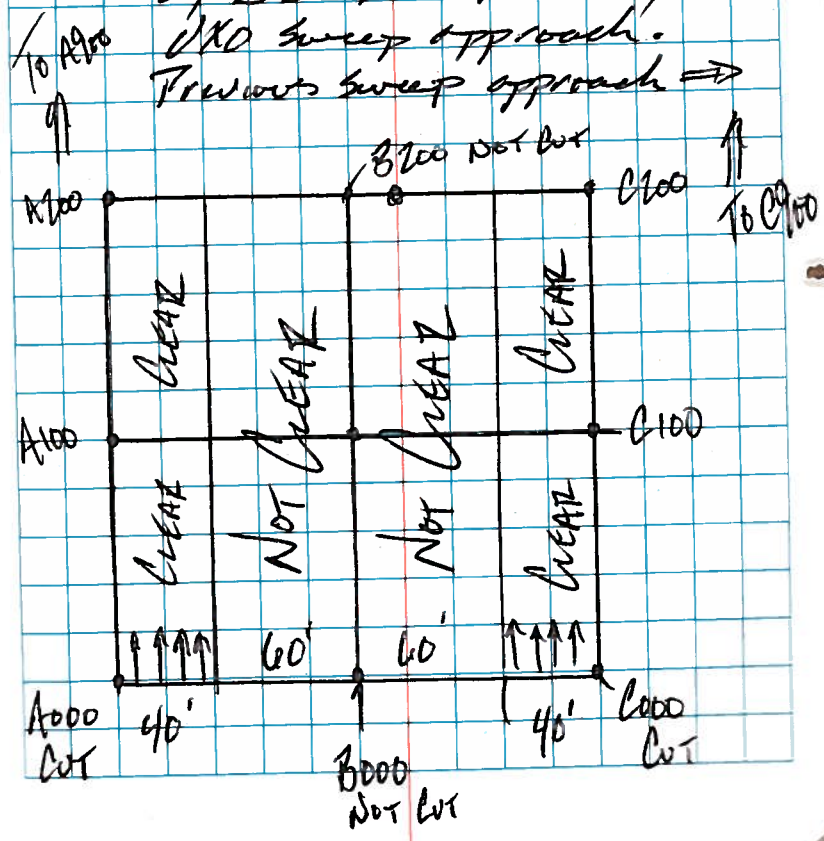 To A900
UXO sweep approach.
Previous sweep approach ⇒
B200 NOT CUT
A200
C200
To C900
CLEAR
NOT CLEAR
NOT CLEAR
CLEAR
A100
C100
CLEAR
CLEAR
60'
60'
A000
CUT
40'
B000
NOT CUT
40'
C000
CUT